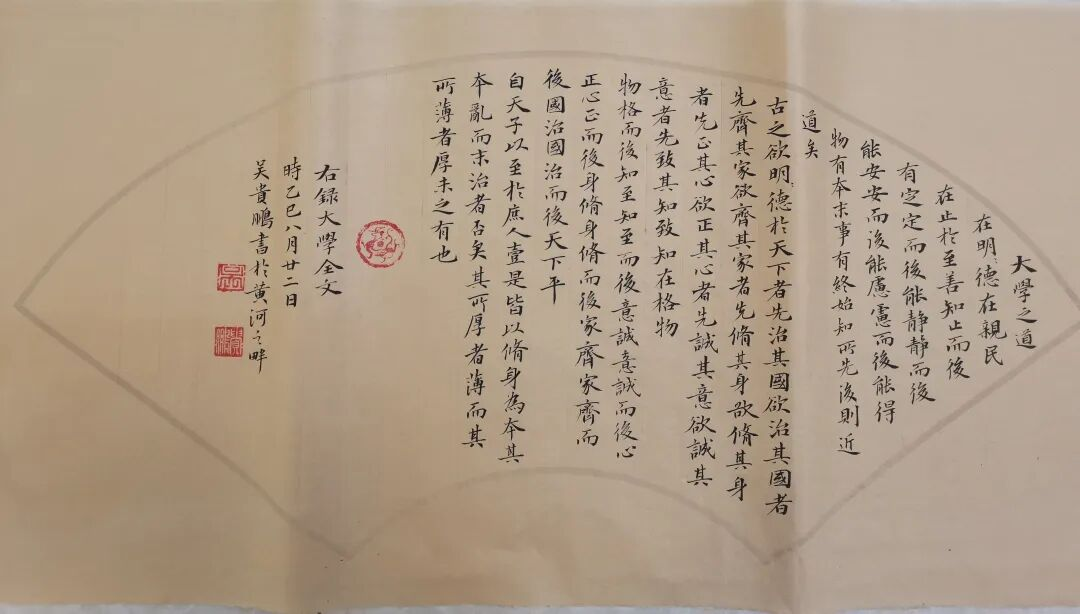 大學之道
在明〻德在親民
在止於至善知止而後
有定定而後能静静而後
能安安而後能慮慮而後能得
物有本末事有終始知所先後則近
道矣
古之欲明〻德於天下者先治其國欲治其國者
先齊其家欲齊其家者先脩其身欲脩其身
者先正其心欲正其心者先誠其意欲誠其
意者先致其知致知在格物
物格而後知至知至而後意誠意誠而後心
正心正而後身脩身脩而後家齊家齊而
後國治國治而後天下平
自天子以至於庶人壹是皆以脩身為本其
本亂而末治者否矣其所厚者薄而其
所薄者厚未之有也
右録大學全文
時乙巳八月廿二日
吴貴鵬書於黄河之畔